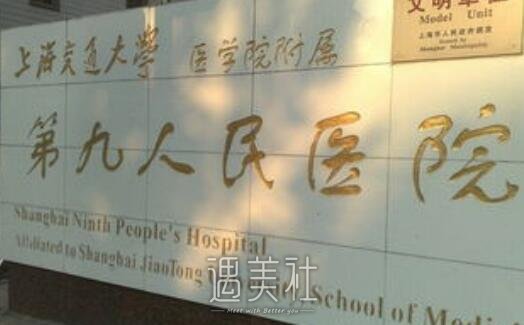 文明单位
Model Unit
上海市人民政府颁发
Issued by
Shanghai Municipality
上海交通大學 医学院附属
第九人民医院
Shanghai Ninth People's Hospital
Affiliated to Shanghai JiaoTong School of Medi
遇美社
Meet with Better you